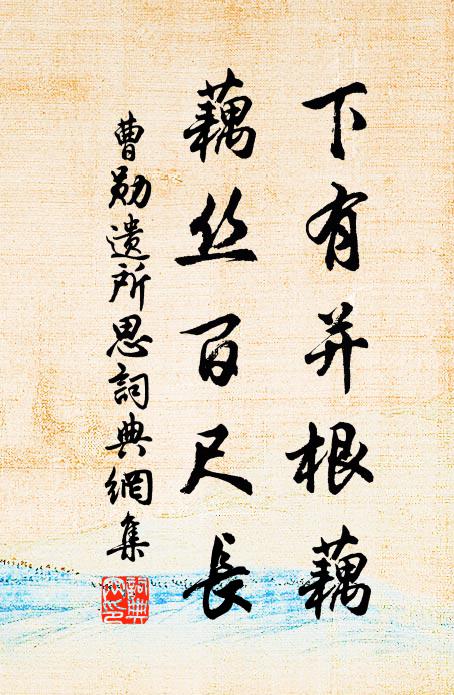 下有并根藕
藕丝百尺长
曹勋遗所思詞典網集